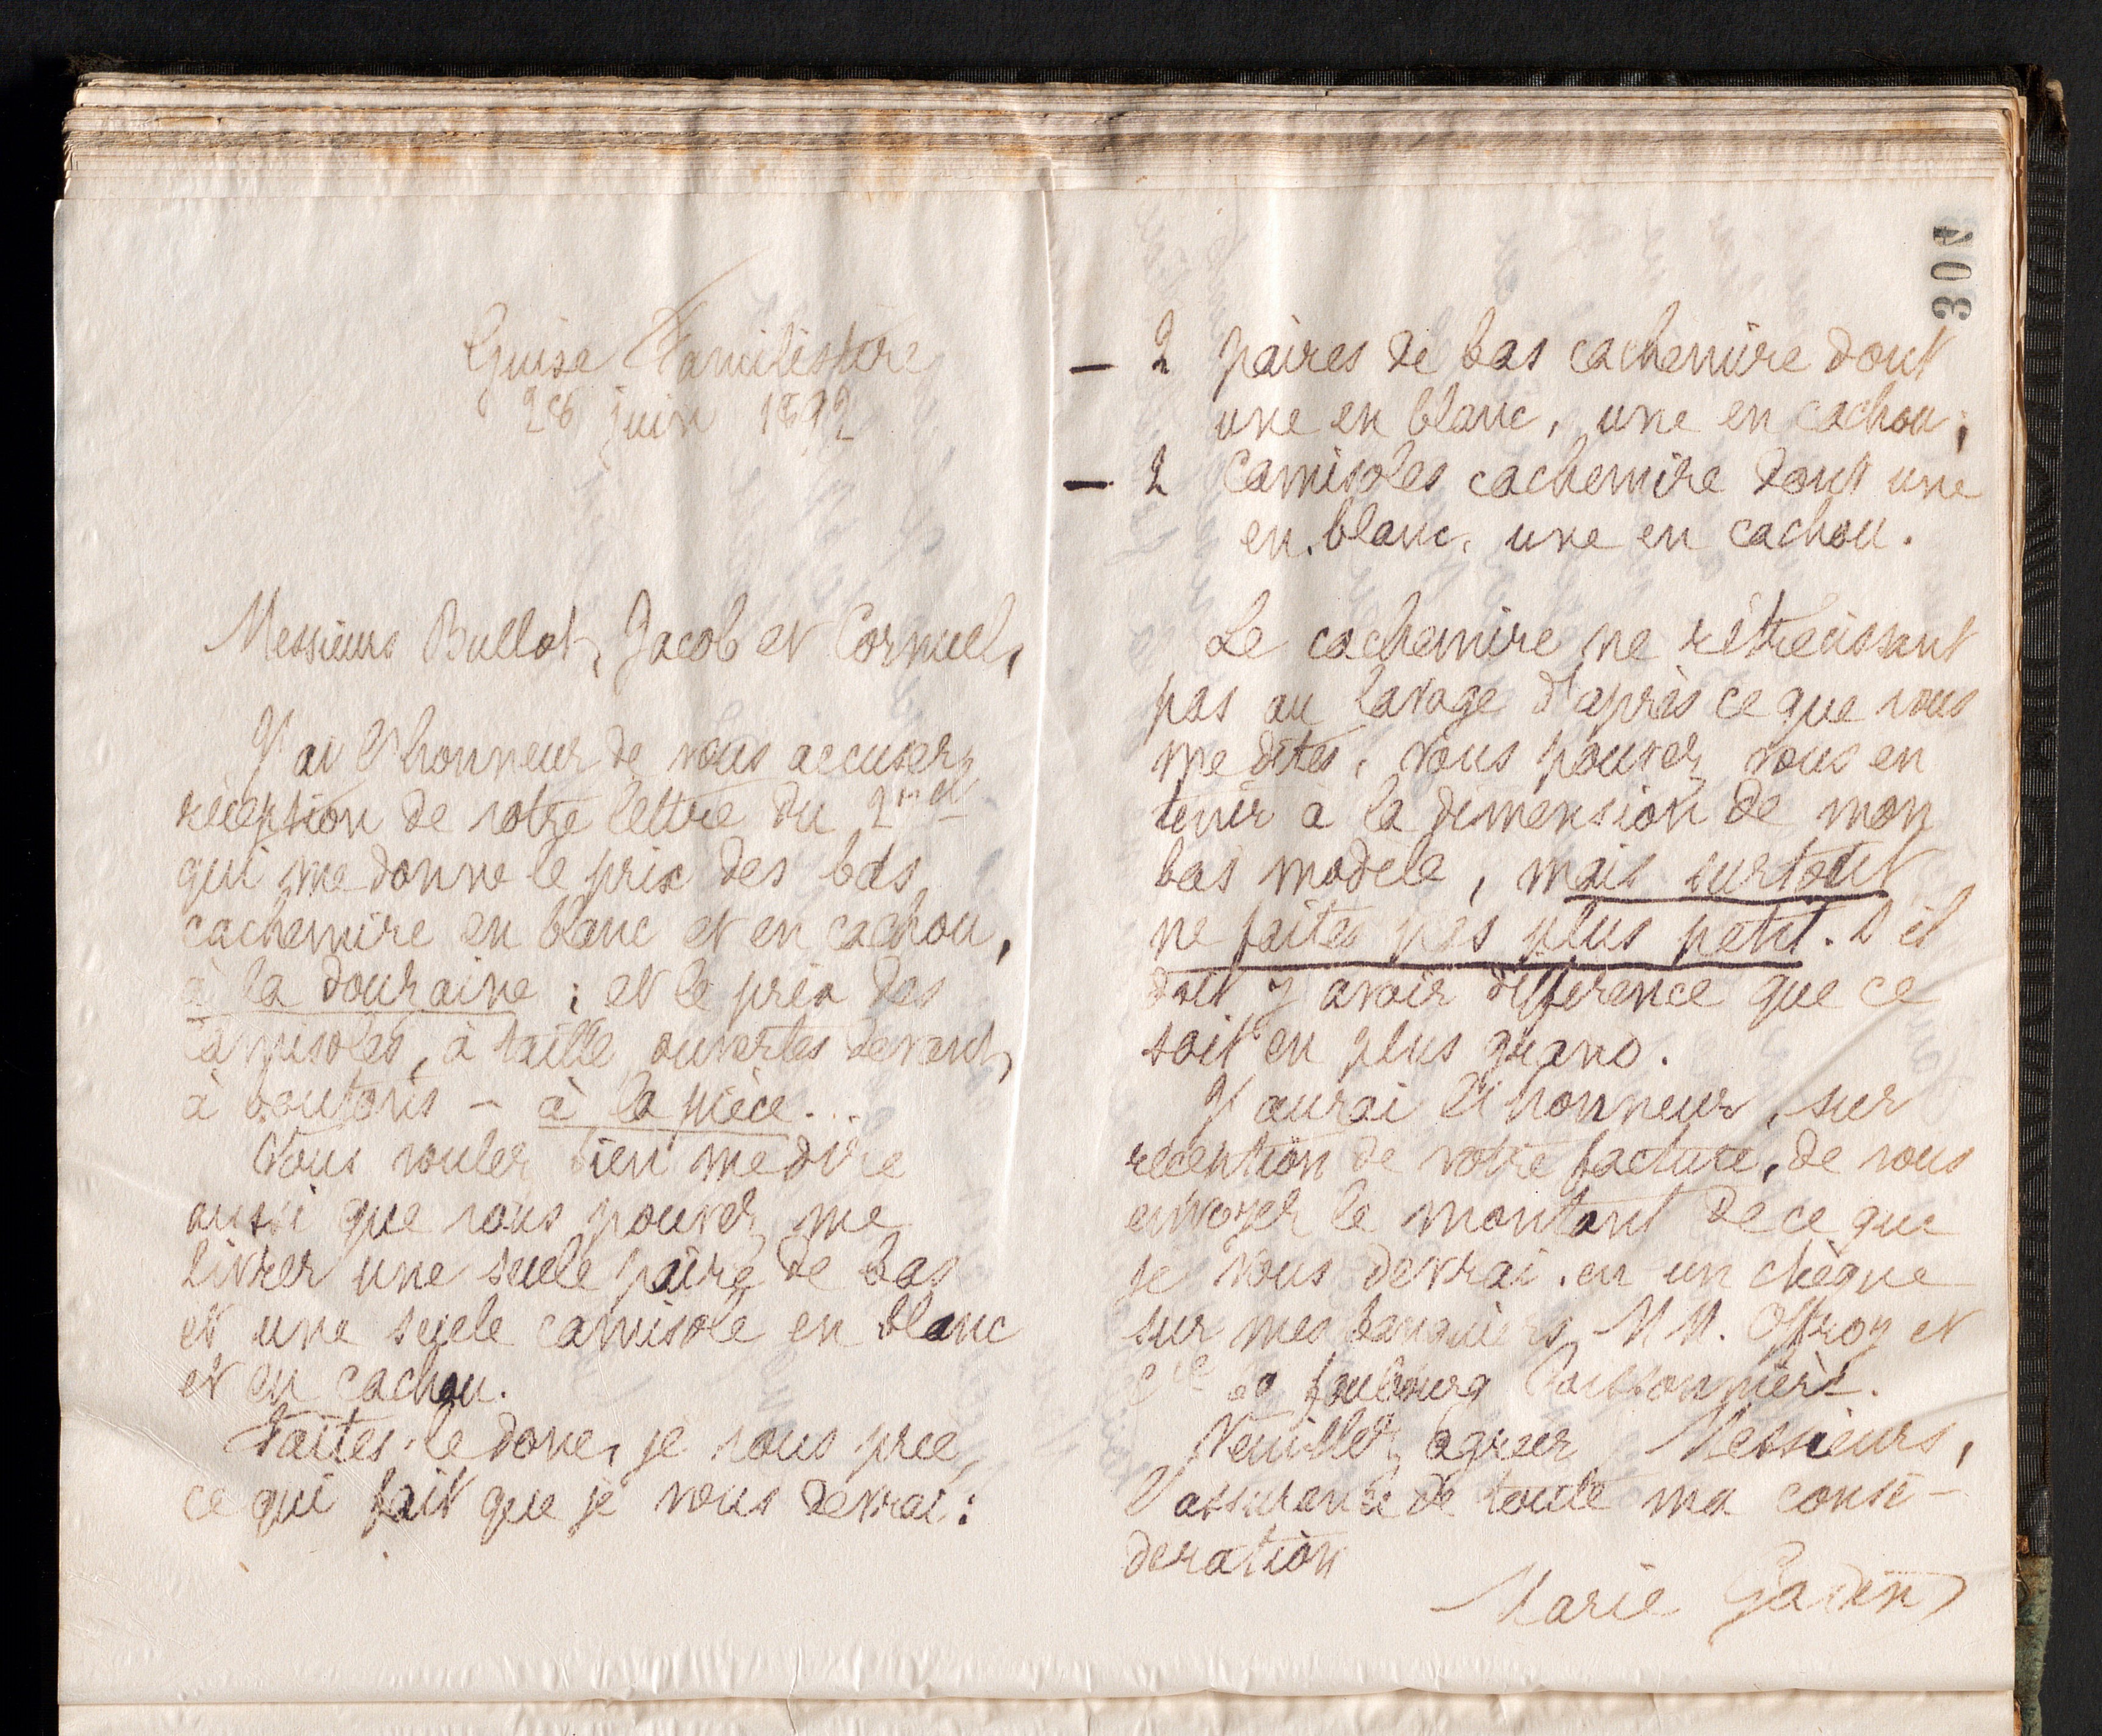 Guise Familistère
26 juin 1892
Messieurs Bullot, Jacob et Cornuel,
J'ai l'honneur de vous accuser
réception de votre lettre du
qui me donne le prix des bas
cachemire en blanc et en cachou,
à la douzaine ; et le prix des
camisoles, à taille ouvertes devant,
à boutons - à la pièce...
Vous voulez bien me dire
aussi que vous pouvez me
livrer une seule paire de bas
et une seule camisole en blanc
et en cachou.
Faites-le donc, je vous prie,
ce qui fait que je vous devrai :
308
- 2 paires de bas cachemire dont
une en blanc, une en cachou ;
- 2 Camisoles cachemire dont une
en blanc, une en cachou.
Le cachemire ne rétrécissant
pas au lavage d'après ce que vous
me dites, vous pouvez vous en
tenir à la dimension de mon
bas modèle, mais surtout
ne faites pas plus petit. S'il
doit y avoir différence que ce
soit en plus grand.
J'aurai l'honneur, sur
réception de votre facture, de vous
envoyer le montant de ce que
je vous devrai, en un chèque
sur mes banquiers MM. Offroy et
Cie faubourg Poissonnière.
Veuillez agréer, Messieurs,
l'assurance de toute ma consi-
dération
Marie Godin